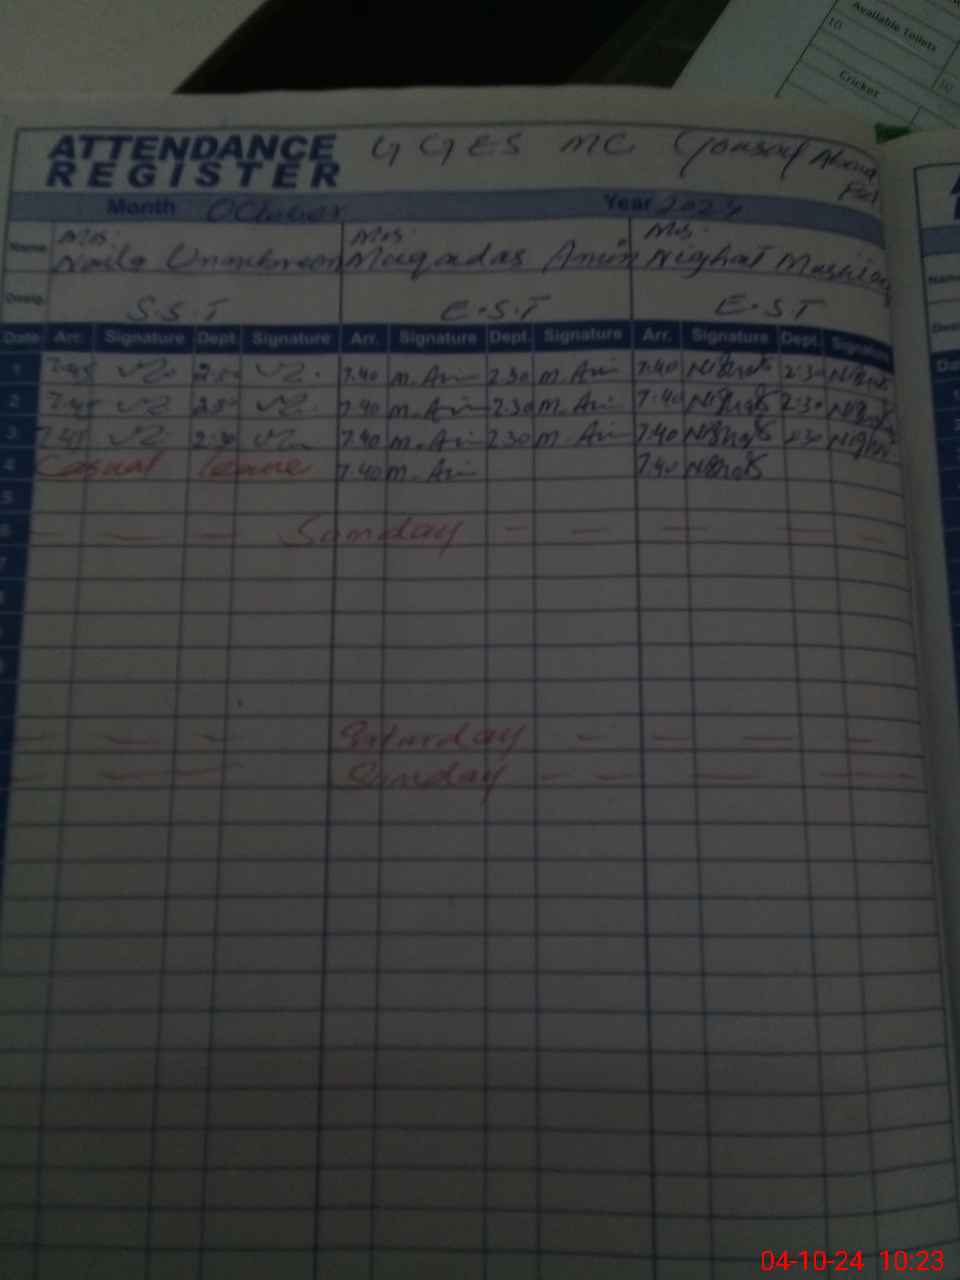 Available Toilets
10
10
Cricket
ATTENDANCE G G E S MC
REGISTER
Month October Year 2024
Name Mrs. Mrs. Mrs.
Naila Muqadas Amin Nighat
Desig. S.S.T E.S.T E.S.T
Date Arr. Signature Dept. Signature Arr. Signature Dept. Signature Arr. Signature Dept. Signature
1 7.45 2.30 7.40 M. Amin 2.30 M. Amin 7.40 Nighat 2.30 Nighat
2 7.45 2.30 7.40 M. Amin 2.30 M. Amin 7.40 Nighat 2.30 Nighat
3 7.45 2.30 7.40 M. Amin 2.30 M. Amin 7.40 Nighat 2.30 Nighat
4 Casual leave 7.40 M. Amin 7.40 Nighat
5
6 — — — Sunday — — — — —
7
— — — Saturday — — — —
— — — Sunday — — — —
04-10-24 10:23